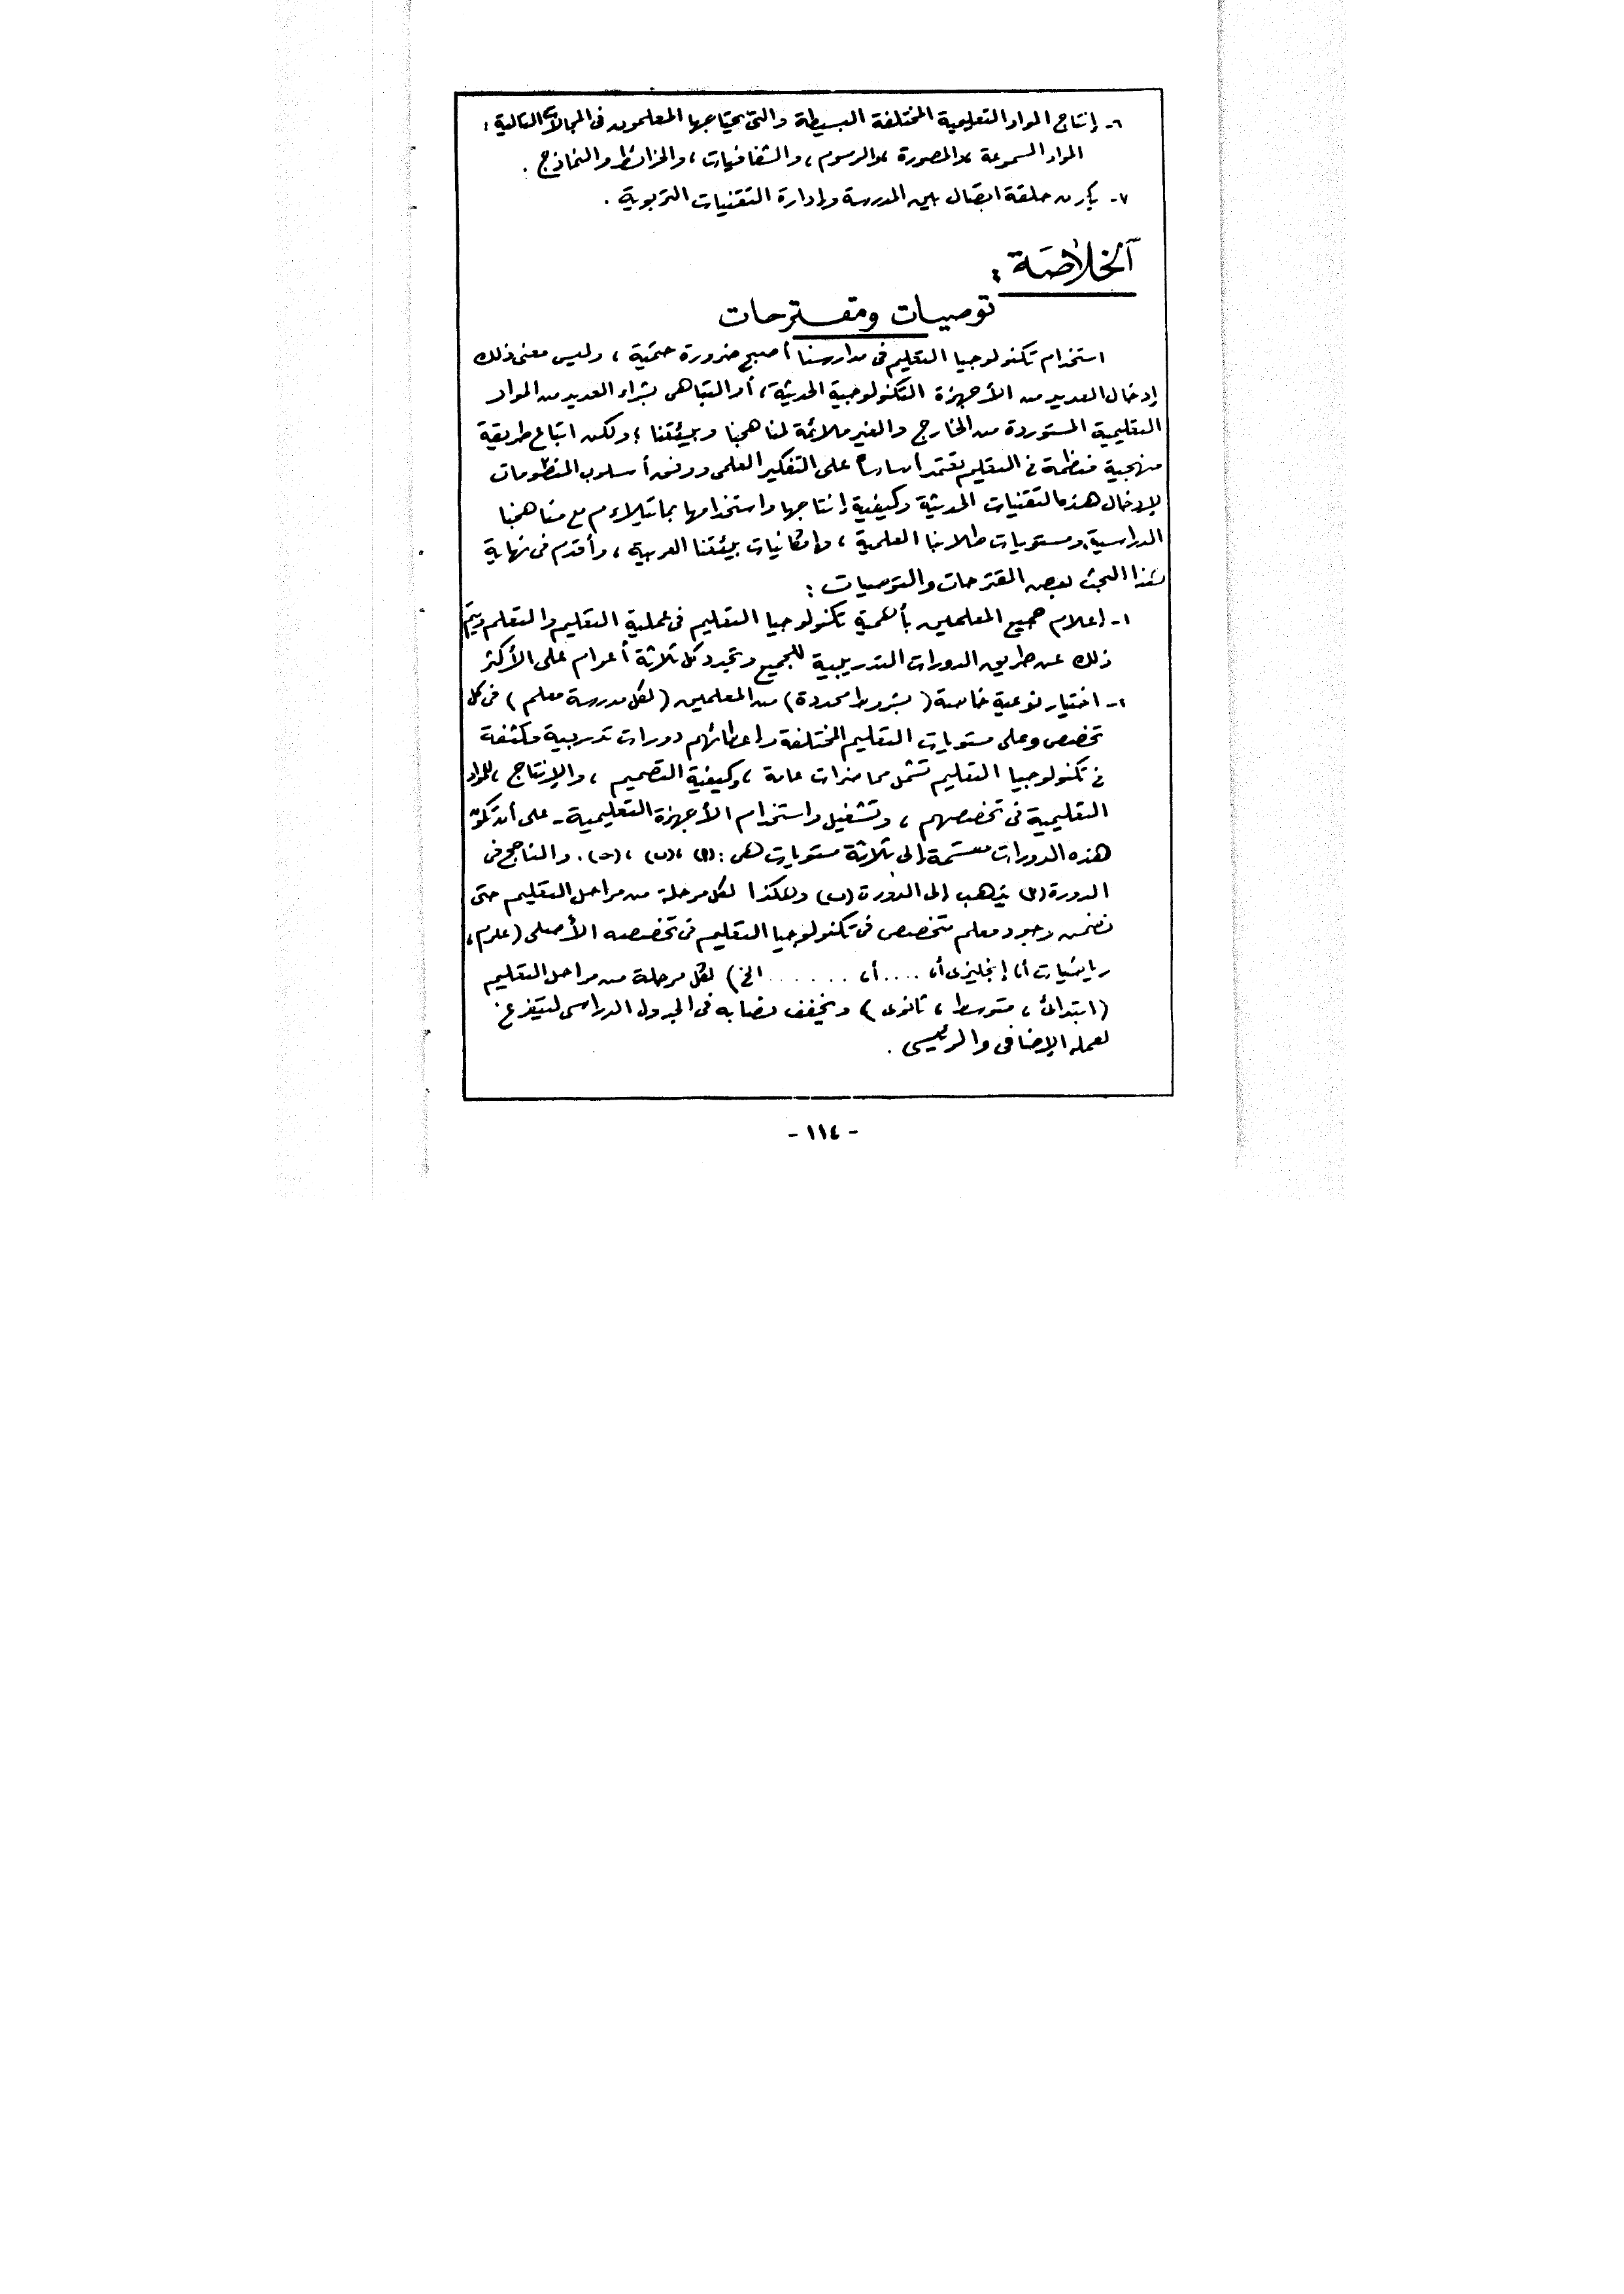 ٦- إنتاج المواد التعليمية المختلفة البسيطة والتى يحتاجها المعلمون فى المجالات التالية :
المواد المسموعة ، والمصورة ، والرسوم ، والشفافيات ، والخرائط والنماذج .
٧- يكون حلقة اتصال بين المدرسة وإدارة التقنيات التربوية .
الخلاصة :
توصيات ومقترحات
استخدام تكنولوجيا التعليم فى مدارسنا أصبح ضرورة حتمية ، وليس معنى ذلك
إدخال العديد من الأجهزة التكنولوجية الحديثة ، أو التباهى بشراء العديد من المواد
التعليمية المستوردة من الخارج والغير ملائمة لمناهجنا وبيئتنا ؛ ولكن اتباع طريقة
منهجية منظمة فى التعليم تعتمد أساساً على التفكير العلمى ووفق أسلوب المنظومات
لإدخال هذه التقنيات الحديثة وكيفية إنتاجها واستخدامها بما يتلاءم مع مناهجنا
الدراسية ومستويات طلابنا العلمية ، وإمكانيات بيئتنا العربية ، وأقدم فى نهاية
هذا البحث بعض المقترحات والتوصيات :
١- إعلام جميع المعلمين بأهمية تكنولوجيا التعليم فى عملية التعليم والتعلم ويتم
ذلك عن طريق الدورات التدريبية للجميع وتجدد كل ثلاثة أعوام على الأكثر
٢- اختيار نوعية خاصة ( بشروط محددة ) من المعلمين ( لكل مدرسة معلم ) فى كل
تخصص وعلى مستويات التعليم المختلفة وإعطائهم دورات تدريبية مكثفة
فى تكنولوجيا التعليم تشمل محاضرات عامة ، وكيفية التصميم ، والإنتاج ، للمواد
التعليمية فى تخصصهم ، وتشغيل واستخدام الأجهزة التعليمية - على أن تكون
هذه الدورات مقسمة إلى ثلاثة مستويات هى : (أ) ، (ب) ، (جـ) . والناجح فى
الدورة (أ) يذهب إلى الدورة (ب) وهكذا لكل مرحلة من مراحل التعليم حتى
نضمن وجود معلم متخصص فى تكنولوجيا التعليم فى تخصصه الأصلى ( علوم ،
رياضيات أ، إنجليزى أ، .... أ، ...... الخ ) لكل مرحلة من مراحل التعليم
( ابتدائى ، متوسط ، ثانوى ) ويخفف نصابه فى الجدول الدراسى ليتفرغ
لعمله الإضافى والرئيسى .
- ١١٤ -